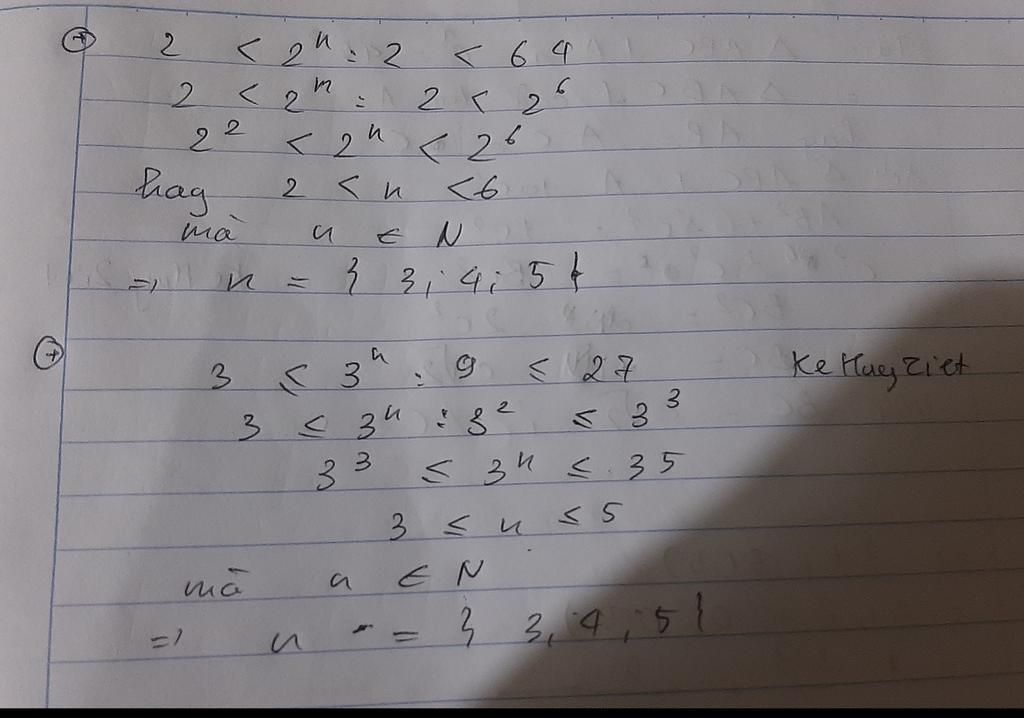 ⊕ 2 < 2ⁿ : 2 < 64
2 < 2ⁿ : 2 < 2⁶
2² < 2ⁿ < 2⁶
hay 2 < n < 6
mà n ∈ N
=> n = { 3; 4; 5 }
⊕ 3 ≤ 3ⁿ : 9 ≤ 27 KeHuyziet
3 ≤ 3ⁿ : 3² ≤ 3³
3³ ≤ 3ⁿ ≤ 35
3 ≤ n ≤ 5
mà n ∈ N
=> n = { 3, 4, 5 }